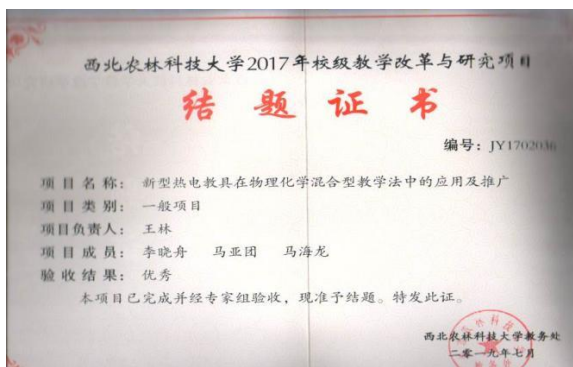 西北农林科技大学2017年校级教学改革与研究项目
结题证书
编号：JY1702036
项目名称：新型热电教具在物理化学混合型教学法中的应用及推广
项目类别：一般项目
项目负责人：王林
项目成员：李晓舟 马亚团 马海龙
验收结果：优秀
本项目已完成并经专家组验收，现准予结题。特发此证。
西北农林科技大学教务处
二零一九年七月